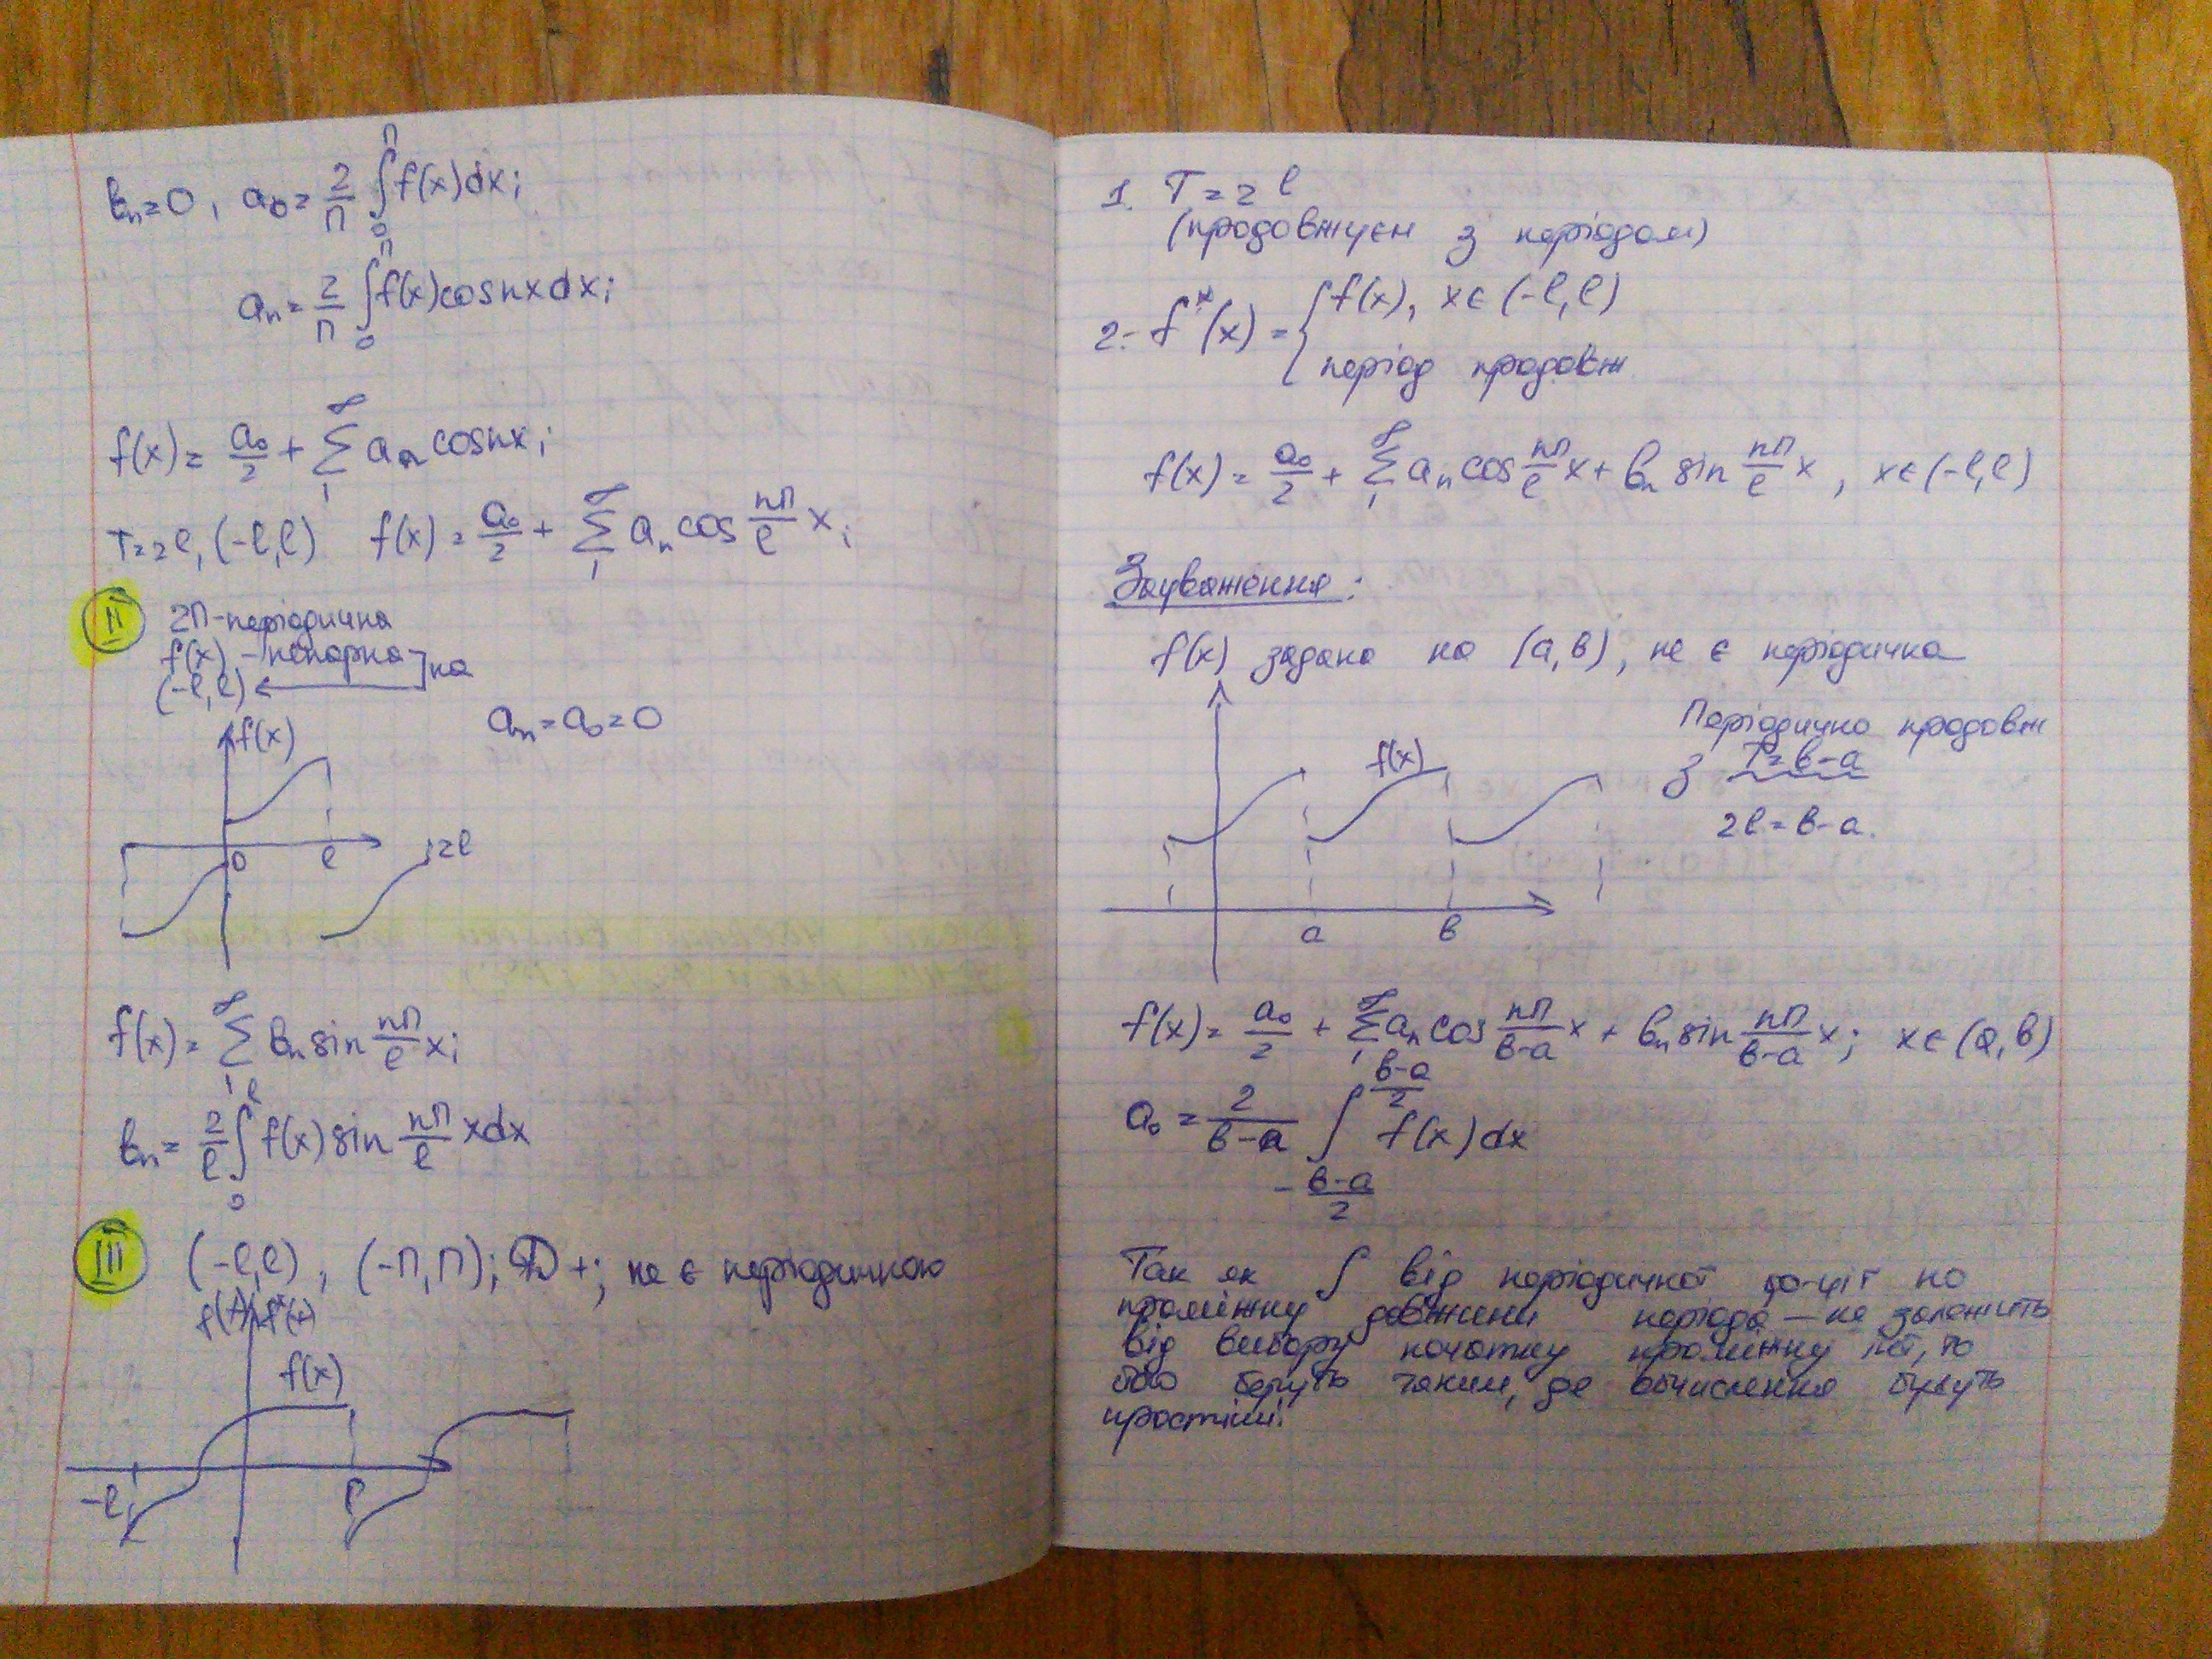 вn=0, a0 = 2/π ∫₀^π f(x)dx;
an = 2/π ∫₀^π f(x)cosnxdx;
f(x) = a0/2 + Σ₁^∞ an cosnx;
T=2ℓ, (-ℓ,ℓ) f(x) = a0/2 + Σ₁^∞ an cos nπ/ℓ x;
II 2π-періодична
f(x) - непарна на
(-ℓ,ℓ)
an = a0 = 0
f(x)
0 ℓ 2ℓ
f(x) = Σ₁^∞ вn sin nπ/ℓ x;
вn = 2/ℓ ∫₀^ℓ f(x) sin nπ/ℓ xdx
III (-ℓ,ℓ), (-π,π); не є періодичною
f(x)
-ℓ ℓ
1. T=2ℓ
(продовжуєм з періодом)
2. f*(x) = { f(x), x∈(-ℓ,ℓ)
період продовж
f(x) = a0/2 + Σ₁^∞ an cos nπ/ℓ x + вn sin nπ/ℓ x, x∈(-ℓ,ℓ)
Зауваження:
f(x) задана на (a,в), не є періодична
Періодично продовж
з T=в-a
2ℓ=в-a.
f(x)
a в
f(x) = a0/2 + Σ₁^∞ an cos nπ/в-a x + вn sin nπ/в-a x; x∈(a,в)
a0 = 2/в-a ∫ f(x)dx
в-a/2
- в-a/2
Так як ∫ від періодичної ф-ції на
проміжку довжини періода - не залежить
від вибору початку проміжку
беруть таким, де обчислення будуть
простіші.